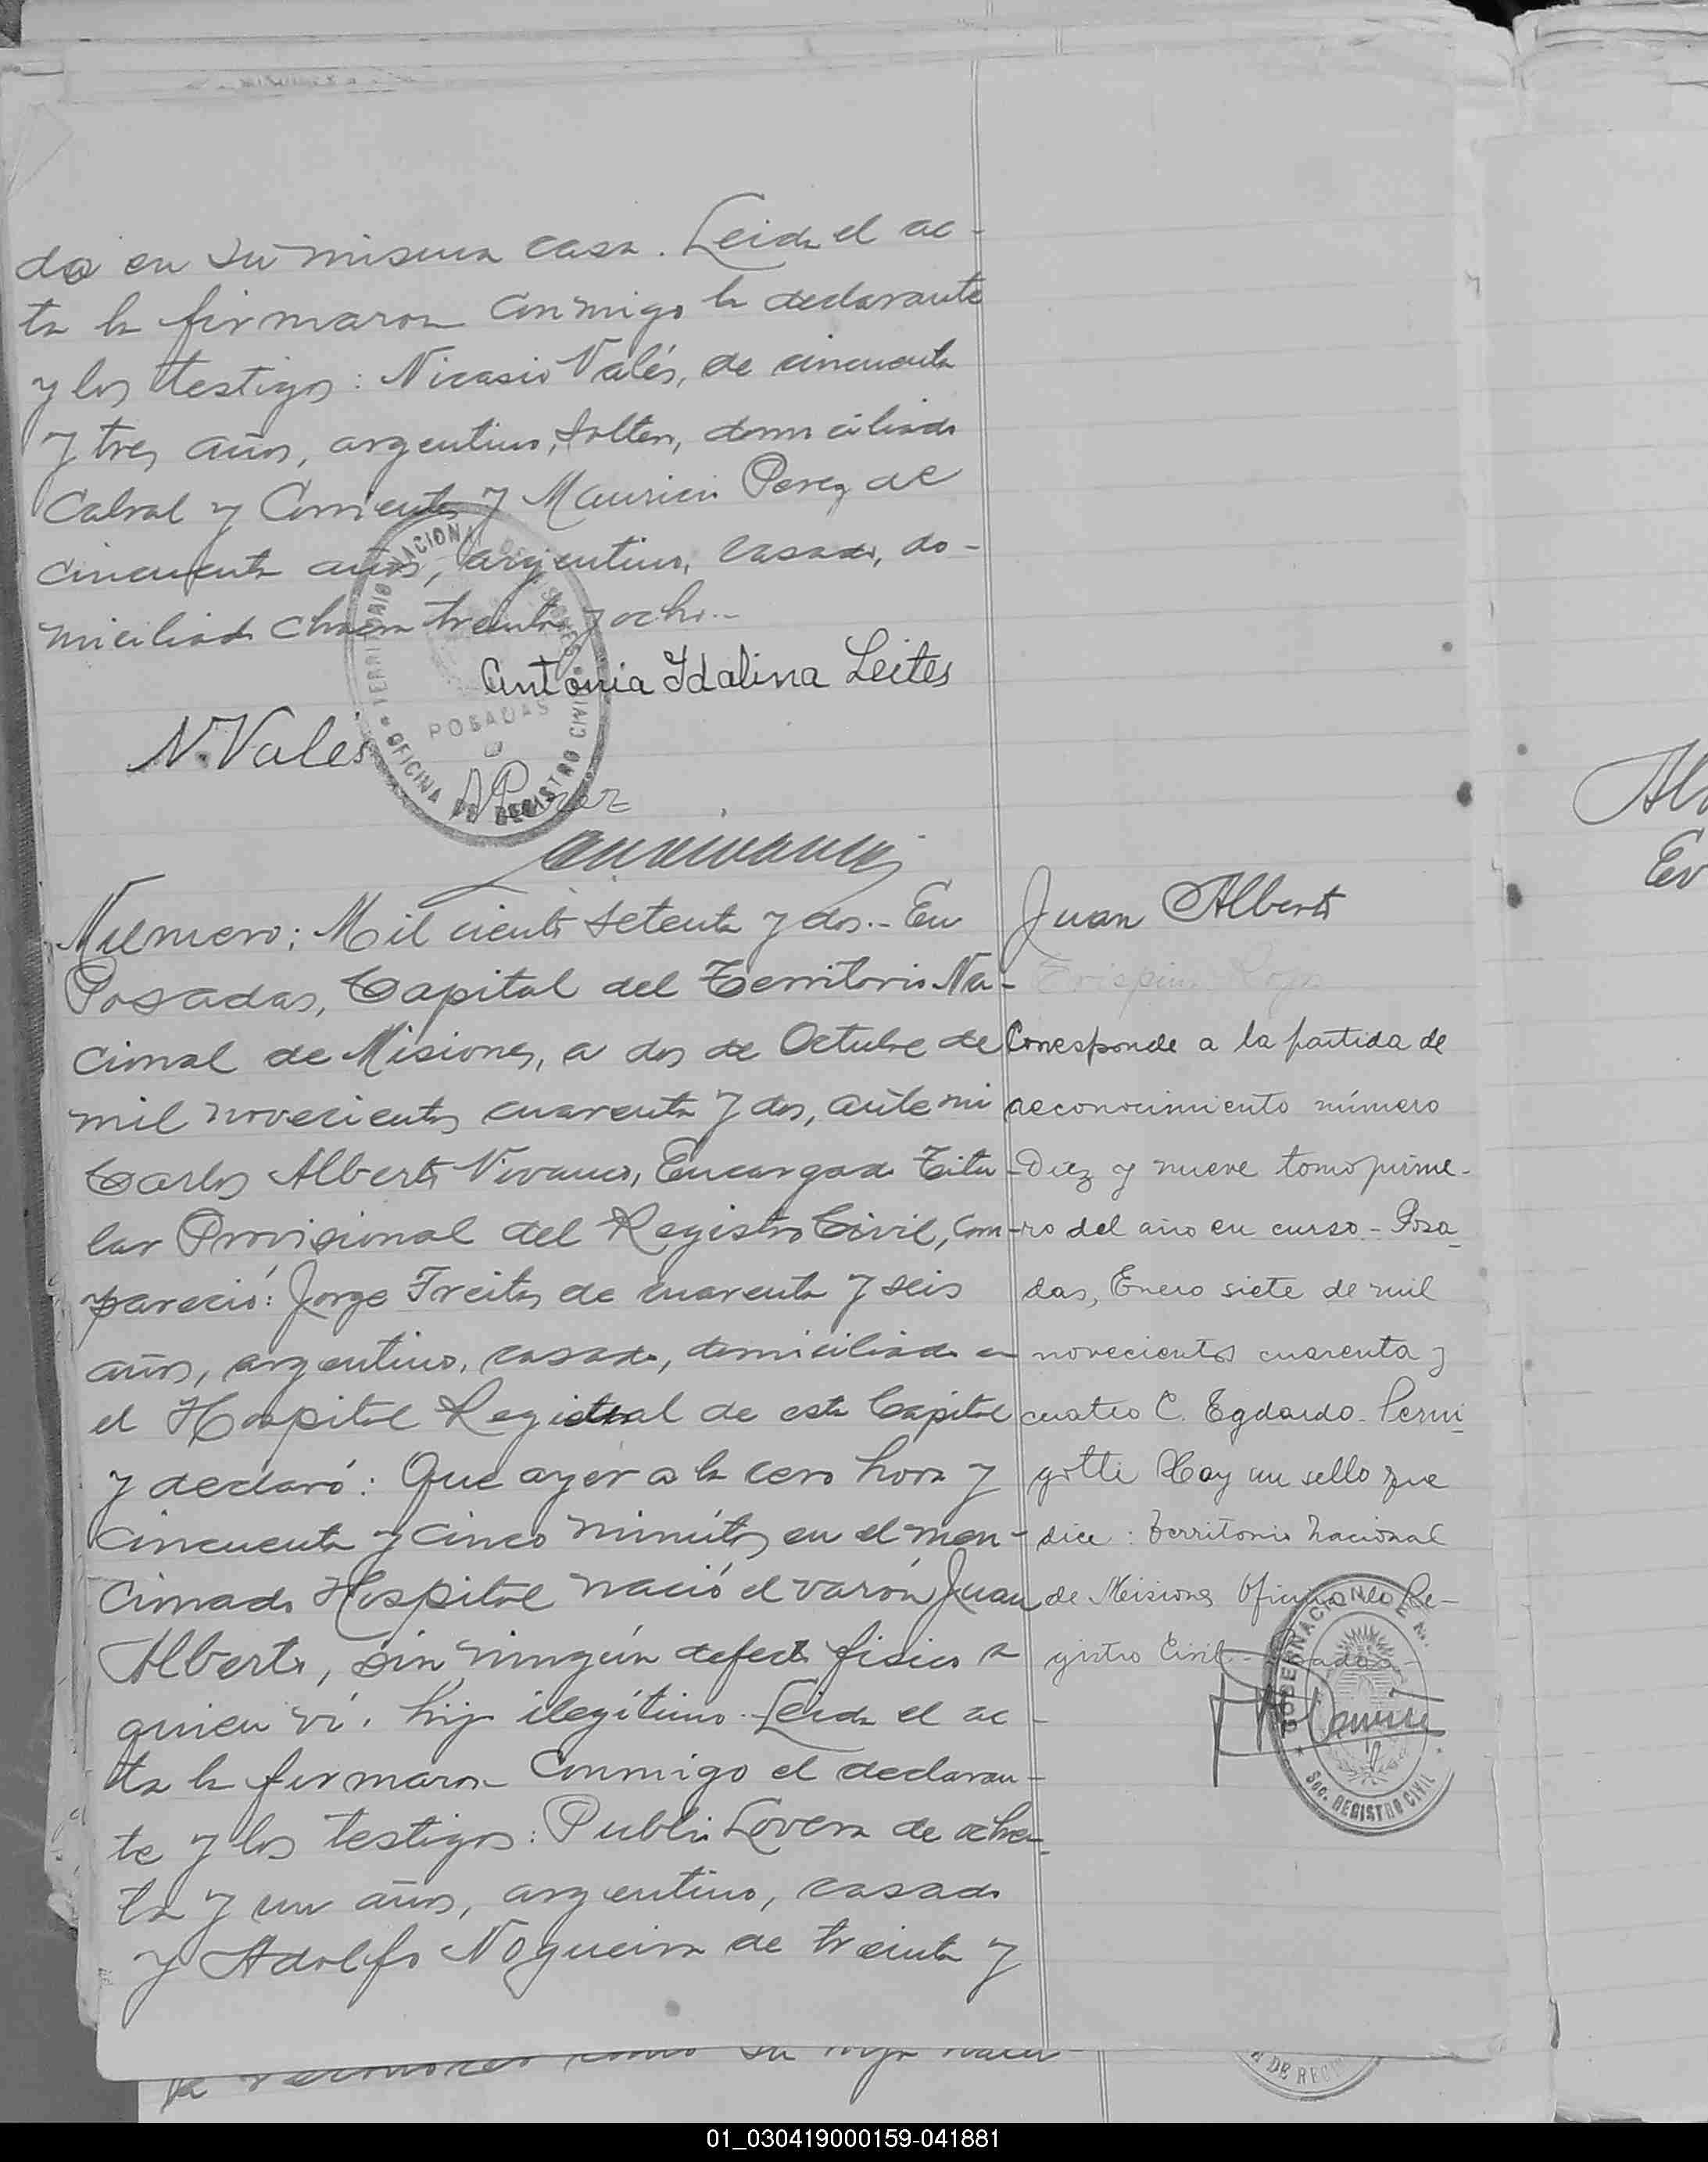 do en su misma casa. Leida el ac-
ta la firmaron conmigo la declarante
y los testigos: Nicasio Valés, de cincuenta
y tres años, argentino, soltero, domiciliado
Cabral y Corrientes y Mauricio Perez de
cincuenta años, argentino, casado, do-
miciliado chacra treinta y ocho.-
Antonia Idalina Leites
N. Vales
Perez
TERRITORIO NACIONAL DE MISIONES
POSADAS
OFICINA DE REGISTRO CIVIL
Numero: Mil ciento setenta y dos.- En
Posadas, Capital del Territorio Na-
cional de Misiones, a dos de Octubre de
mil novecientos cuarenta y dos, ante mi
Carlos Alberto Vivanco, Encargado Titu-
lar Provisional del Registro Civil, com-
pareció: Jorge Freitas de cuarenta y seis
años, argentino, casado, domiciliado en
el Hospital Regional de esta Capital
y declaró: Que ayer a la cero hora y
cincuenta y cinco minutos en el men-
cionado Hospital nació el varón Juan
Alberto, sin ningún defecto fisico a
quien vi, hijo ilegítimo. Leida el ac-
ta la firmaron conmigo el declaran-
te y los testigos: Publio Lovera de ochen-
ta y un años, argentino, casado
y Adolfo Nogueira de treinta y
Juan Alberto
Crispin Rojas
Corresponde a la partida de
reconocimiento número
Diez y nueve tomo prime-
ro del año en curso.- Posa-
das, Enero siete de mil
novecientos cuarenta y
cuatro C. Egdardo Perni-
gotti Hay un sello que
dice: Territorio Nacional
de Misiones Oficina de Re-
gistro Civil - Posadas -
GOBERNACION DE M.
SEC. REGISTRO CIVIL
DE REGI
Alb
Ev
01_030419000159-041881